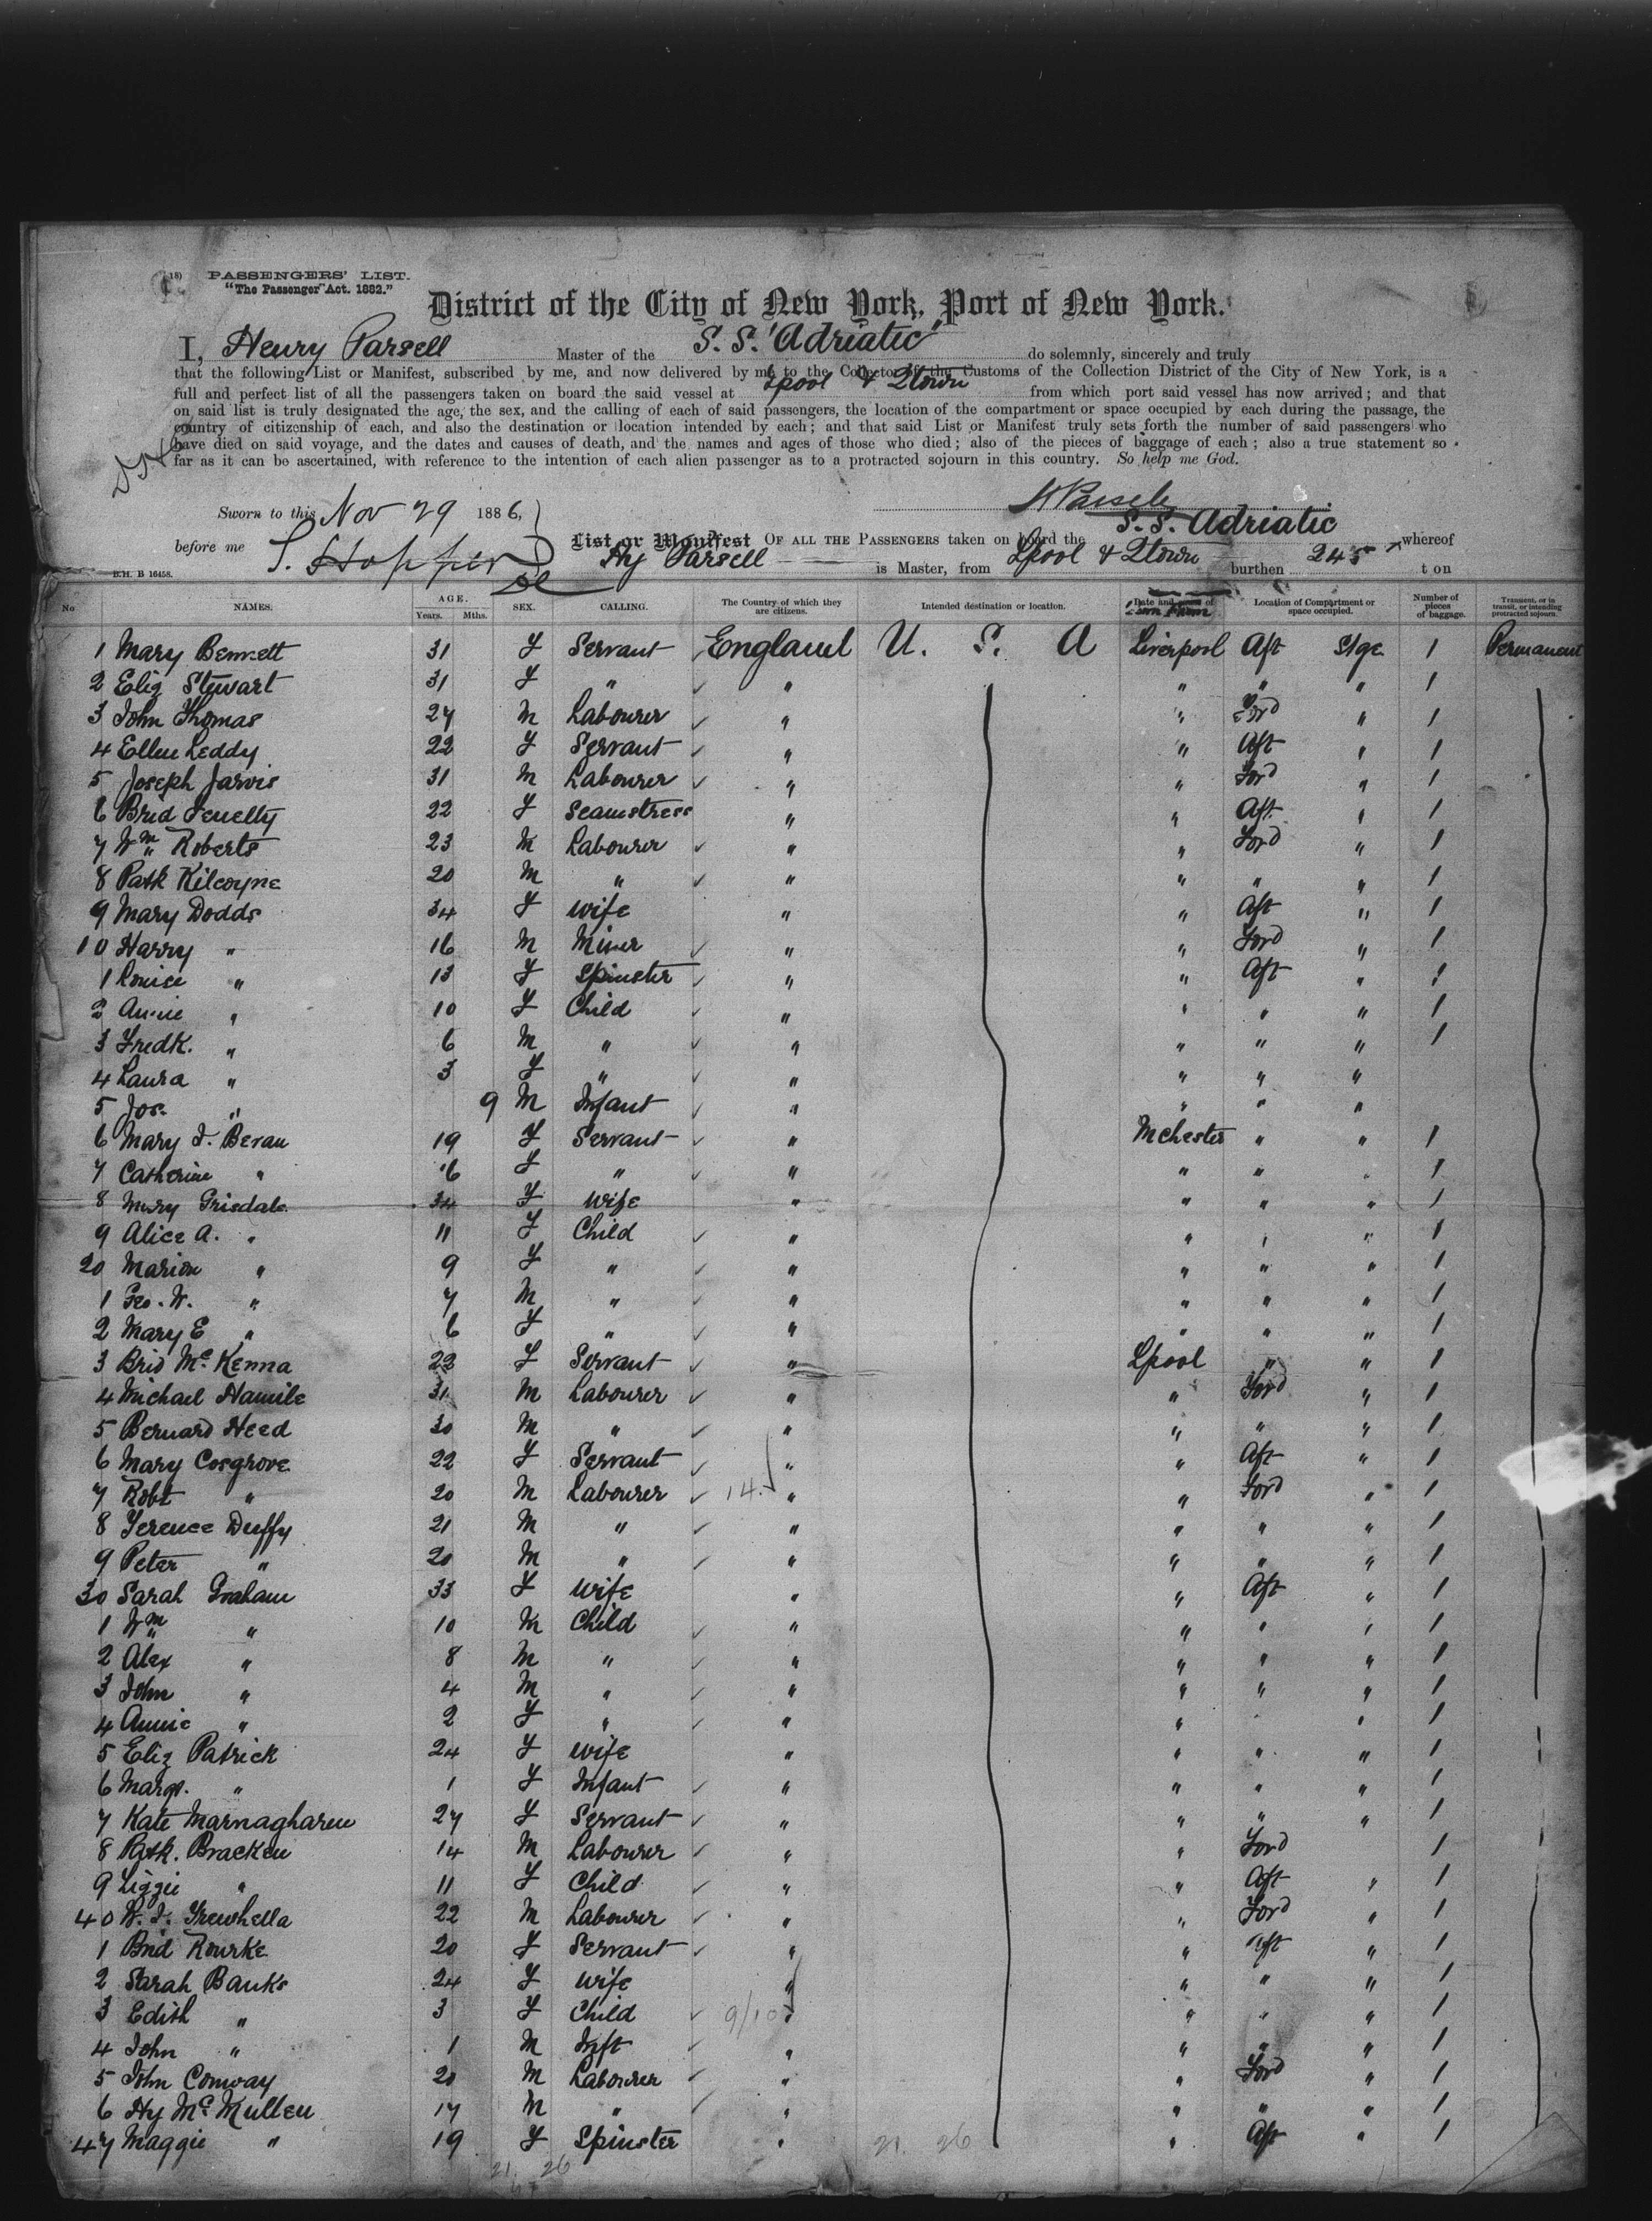 (18) PASSENGERS' LIST.
"The Passenger Act. 1882."
District of the City of New York, Port of New York.
I, Henry Parsell Master of the S. S. "Adriatic" do solemnly, sincerely and truly
that the following List or Manifest, subscribed by me, and now delivered by me to the Collector of the Customs of the Collection District of the City of New York, is a
full and perfect list of all the passengers taken on board the said vessel at Lpool & Qtown from which port said vessel has now arrived; and that
on said list is truly designated the age, the sex, and the calling of each of said passengers, the location of the compartment or space occupied by each during the passage, the
country of citizenship of each, and also the destination or location intended by each; and that said List or Manifest truly sets forth the number of said passengers who
have died on said voyage, and the dates and causes of death, and the names and ages of those who died; also of the pieces of baggage of each; also a true statement so
far as it can be ascertained, with reference to the intention of each alien passenger as to a protracted sojourn in this country. So help me God.
Sworn to this Nov 29 1886, H Parsell
before me S. Hopper List or Manifest OF ALL THE PASSENGERS taken on board the S. S. Adriatic whereof
B.H. B 16458. Hy Parsell is Master, from Lpool & Qtown burthen 245 ton
No NAMES. AGE. Years. Mths. SEX. CALLING. The Country of which they are citizens. Intended destination or location. Date and Location of Compartment or space occupied. Number of pieces of baggage. Transient, or in transit, or intending protracted sojourn.
1 Mary Bennett 31 F Servant England U. S. A Liverpool Aft Stge 1 Permanent
2 Eliz Stewart 31 F " " " " " 1
3 John Thomas 27 M Labourer " " Ford " 1
4 Ellen Leddy 22 F Servant " " Aft " 1
5 Joseph Jarvis 31 M Labourer " " Ford " 1
6 Brid Fenelly 22 F Seamstress " " Aft " 1
7 Wm Roberts 23 M Labourer " " Ford " 1
8 Patk Kilcoyne 20 M " " " " " 1
9 Mary Dodds 34 F Wife " " Aft " 1
10 Harry " 16 M Miner " " Ford " 1
1 Louise " 13 F Spinster " " Aft " 1
2 Annie " 10 F Child " " " " 1
3 Fredk. " 6 M " " " " " 1
4 Laura " 3 F " " " " "
5 Jos. " 9 M Infant " " " "
6 Mary J. Bevan 19 F Servant " Mchester " " 1
7 Catherine " 16 F " " " " " 1
8 Mary Grisdale 34 F Wife " " " " 1
9 Alice A. " 11 F Child " " " " 1
20 Marion " 9 F " " " " " 1
1 Geo. W. " 7 M " " " " " 1
2 Mary E " 6 F " " " " " 1
3 Brid McKenna 22 F Servant " Lpool " " 1
4 Michael Hamile 31 M Labourer " " Ford " 1
5 Bernard Heed 30 M " " " " " 1
6 Mary Cosgrove 22 F Servant " " Aft " 1
7 Robt " 20 M Labourer 14. " " Ford " 1
8 Terence Duffy 21 M " " " " " 1
9 Peter " 20 M " " " " " 1
30 Sarah Graham 33 F Wife " " Aft " 1
1 Wm " 10 M Child " " " " 1
2 Alex " 8 M " " " " " 1
3 John " 4 M " " " " " 1
4 Annie " 2 F " " " " 1
5 Eliz Patrick 24 F Wife " " " " 1
6 Margt. " 1 F Infant " " " " 1
7 Kate Marnagharen 27 F Servant " " " " 1
8 Patk. Bracken 14 M Labourer " " Ford 1
9 Lizzie " 11 F Child " " Aft " 1
40 W. J. Trewhella 22 M Labourer " " Ford " 1
1 Brid Rourke 20 F Servant " " Aft " 1
2 Sarah Banks 24 F Wife " " " " 1
3 Edith " 3 F Child 9/10 " " " " 1
4 John " 1 M Inft " " " " 1
5 John Conway 20 M Labourer " " Ford " 1
6 Hy McMullen 17 M " " " " " 1
47 Maggie " 19 F Spinster " 21. 26 " Aft " 1
21. 26